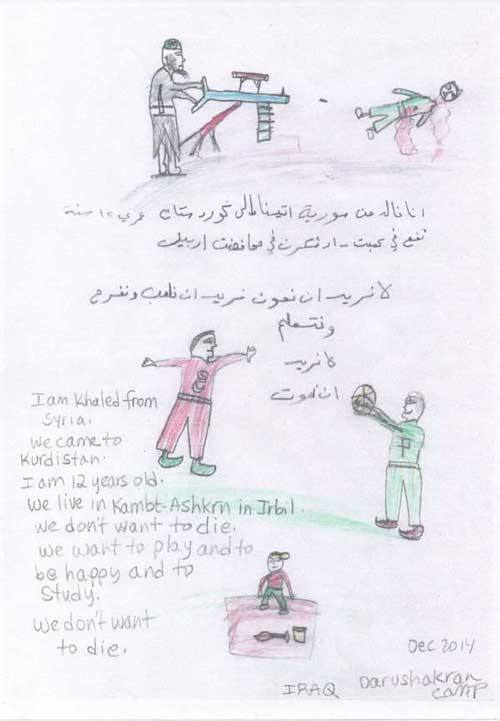 انا خالد من سورية اتينا الى كوردستان عمري ١٢ سنة
في كمبت دارشكرن في محافظت اربيل
لا نريد ان نموت نريد ان نلعب ونفرح
ونتعلم
لا نريد
ان نموت
I am Khaled from
Syria.
we came to
Kurdistan.
I am 12 years old.
We live in Kambt-Ashkrn in Irbil.
we don't want to die.
we want to play and to
be happy and to
study.
we don't want
to die.
Dec 2014
IRAQ Darushakran
camp